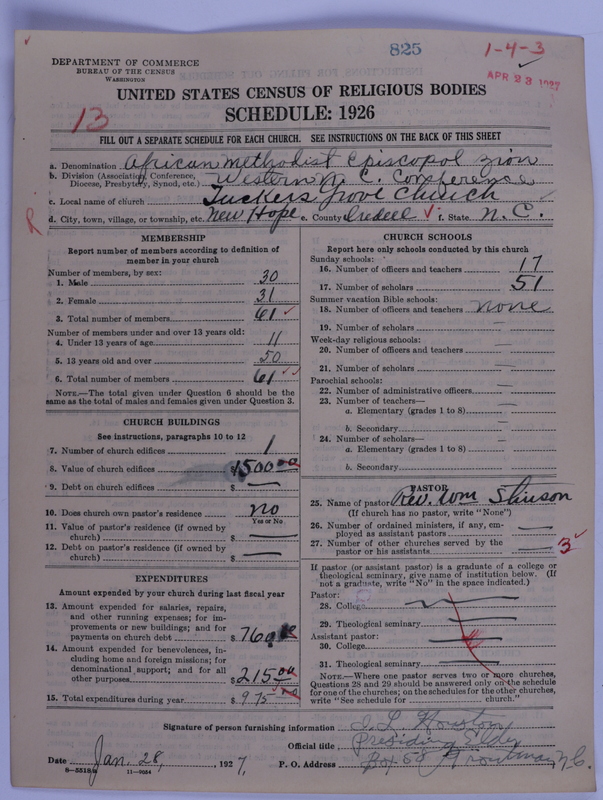 825
1-4-3
APR 23 1927
DEPARTMENT OF COMMERCE
BUREAU OF THE CENSUS
WASHINGTON
UNITED STATES CENSUS OF RELIGIOUS BODIES
SCHEDULE: 1926
13
FILL OUT A SEPARATE SCHEDULE FOR EACH CHURCH. SEE INSTRUCTIONS ON THE BACK OF THIS SHEET
a. Denomination African Methodist Episcopol Zion
b. Division (Association, Conference, Diocese, Presbytery, Synod, etc.) Western N.C. Conference
c. Local name of church Tuckers Grove Church
d. City, town, village, or township, etc. New Hope e. County Iredell f. State N.C.
R
MEMBERSHIP
Report number of members according to definition of
member in your church
Number of members, by sex:
1. Male 30
2. Female 31
3. Total number of members 61
Number of members under and over 13 years old:
4. Under 13 years of age 11
5. 13 years old and over 50
6. Total number of members 61
NOTE.—The total given under Question 6 should be the
same as the total of males and females given under Question 3.
CHURCH BUILDINGS
See instructions, paragraphs 10 to 12
7. Number of church edifices 1
8. Value of church edifices 1500.00
9. Debt on church edifices $ —
10. Does church own pastor's residence? no
Yes or No
11. Value of pastor's residence (if owned by
church) $ —
12. Debt on pastor's residence (if owned by
church) $ —
EXPENDITURES
Amount expended by your church during last fiscal year
13. Amount expended for salaries, repairs,
and other running expenses; for im-
provements or new buildings; and for
payments on church debt $ 760
14. Amount expended for benevolences, in-
cluding home and foreign missions; for
denominational support; and for all
other purposes $ 215.00
15. Total expenditures during year $ 975
CHURCH SCHOOLS
Report here only schools conducted by this church
Sunday schools:
16. Number of officers and teachers 17
17. Number of scholars 51
Summer vacation Bible schools:
18. Number of officers and teachers none
19. Number of scholars —
Week-day religious schools:
20. Number of officers and teachers —
21. Number of scholars —
Parochial schools:
22. Number of administrative officers —
23. Number of teachers—
a. Elementary (grades 1 to 8) —
b. Secondary —
24. Number of scholars—
a. Elementary (grades 1 to 8) —
b. Secondary —
PASTOR
25. Name of pastor Rev. Wm Stinson
(If church has no pastor, write "None")
26. Number of ordained ministers, if any, em-
ployed as assistant pastors —
27. Number of other churches served by the
pastor or his assistants 3
If pastor (or assistant pastor) is a graduate of a college or
theological seminary, give name of institution below. (If
not a graduate, write "No" in the space indicated.)
Pastor:
28. College —
29. Theological seminary —
Assistant pastor:
30. College —
31. Theological seminary —
NOTE.—Where one pastor serves two or more churches,
Questions 28 and 29 should be answered only on the schedule
for one of the churches; on the schedules for the other churches,
write "See schedule for ........ church."
Signature of person furnishing information J. L. Houston
Official title Presiding Elder
Date Jan. 28, 1927. P. O. Address Box 68 Troutman, N.C.
8—5518 11—9054